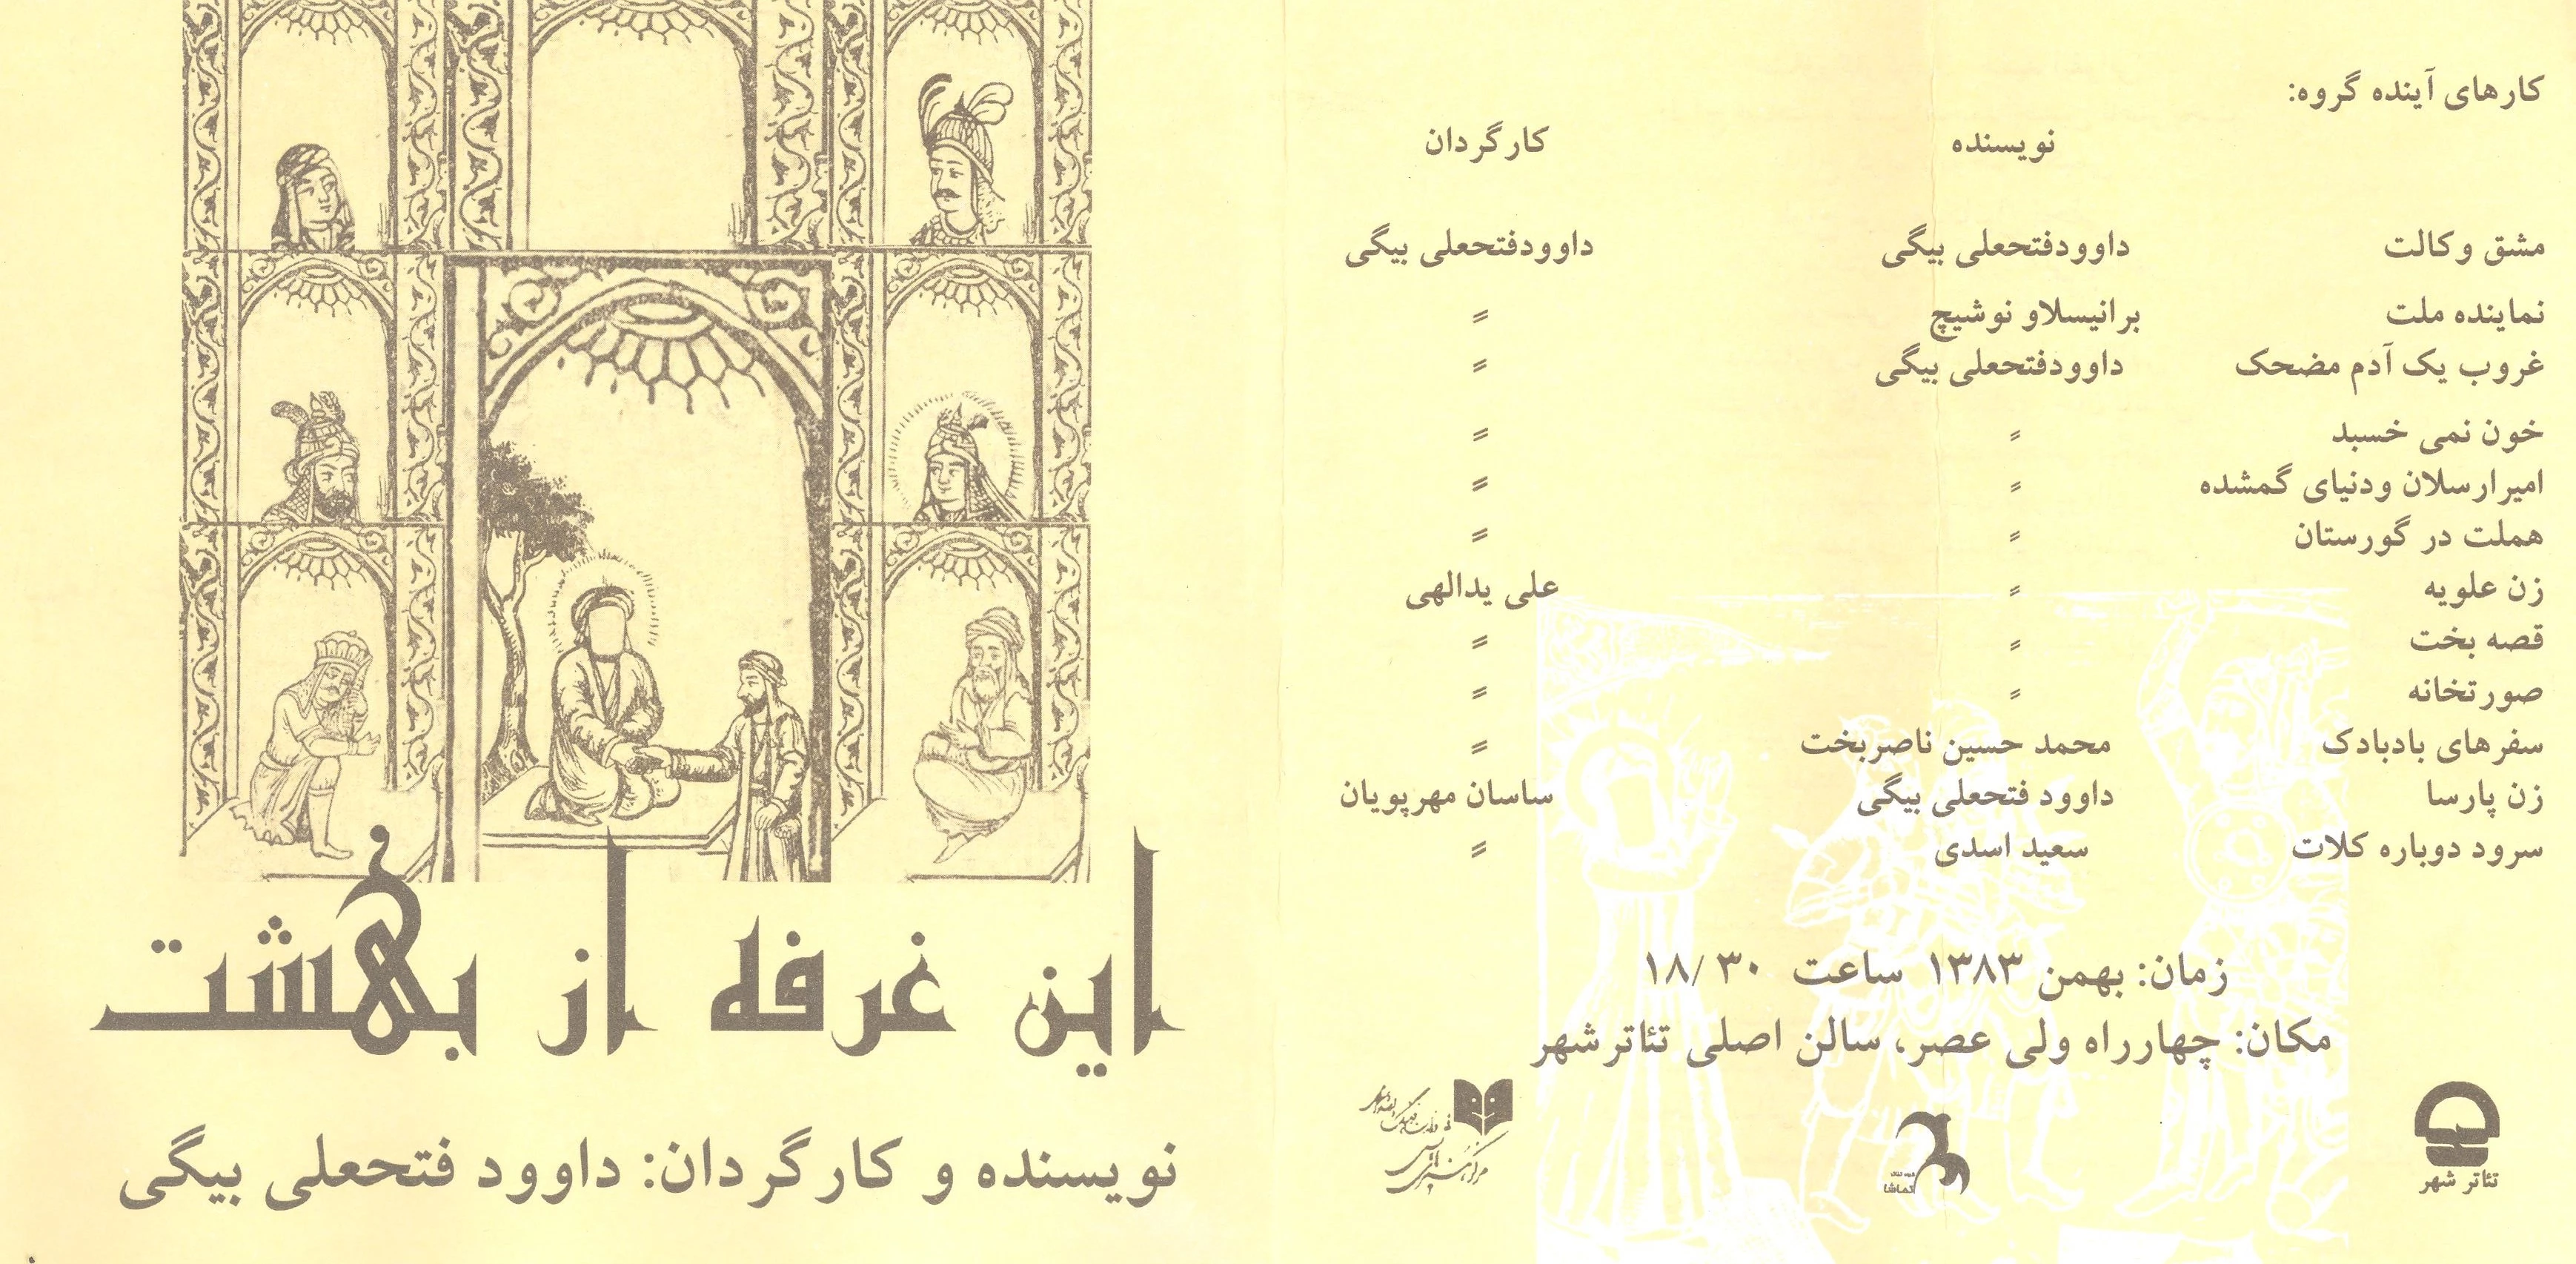 کارهای آینده گروه:
نویسنده کارگردان
مشق وکالت داوودفتحعلی بیگی داوودفتحعلی بیگی
نماینده ملت برانیسلاو نوشیچ〃
غروب یک آدم مضحک داوودفتحعلی بیگی 〃
خون نمی خسبد 〃 〃
امیرارسلان ودنیای گمشده 〃 〃
هملت در گورستان 〃 〃
زن علویه 〃 علی یدالهی
قصه بخت 〃 〃
صورتخانه 〃 〃
سفرهای بادبادک محمد حسین ناصربخت 〃
زن پارسا داوود فتحعلی بیگی ساسان مهرپویان
سرود دوباره کلات سعید اسدی 〃
زمان: بهمن ۱۳۸۳ ساعت ۱۸/۳۰
مکان: چهارراه ولی عصر، سالن اصلی تئاترشهر
تئاتر شهر
تماشا
مرکز هنرهای نمایشی
این غرفه از بهشت
نویسنده و کارگردان: داوود فتحعلی بیگی